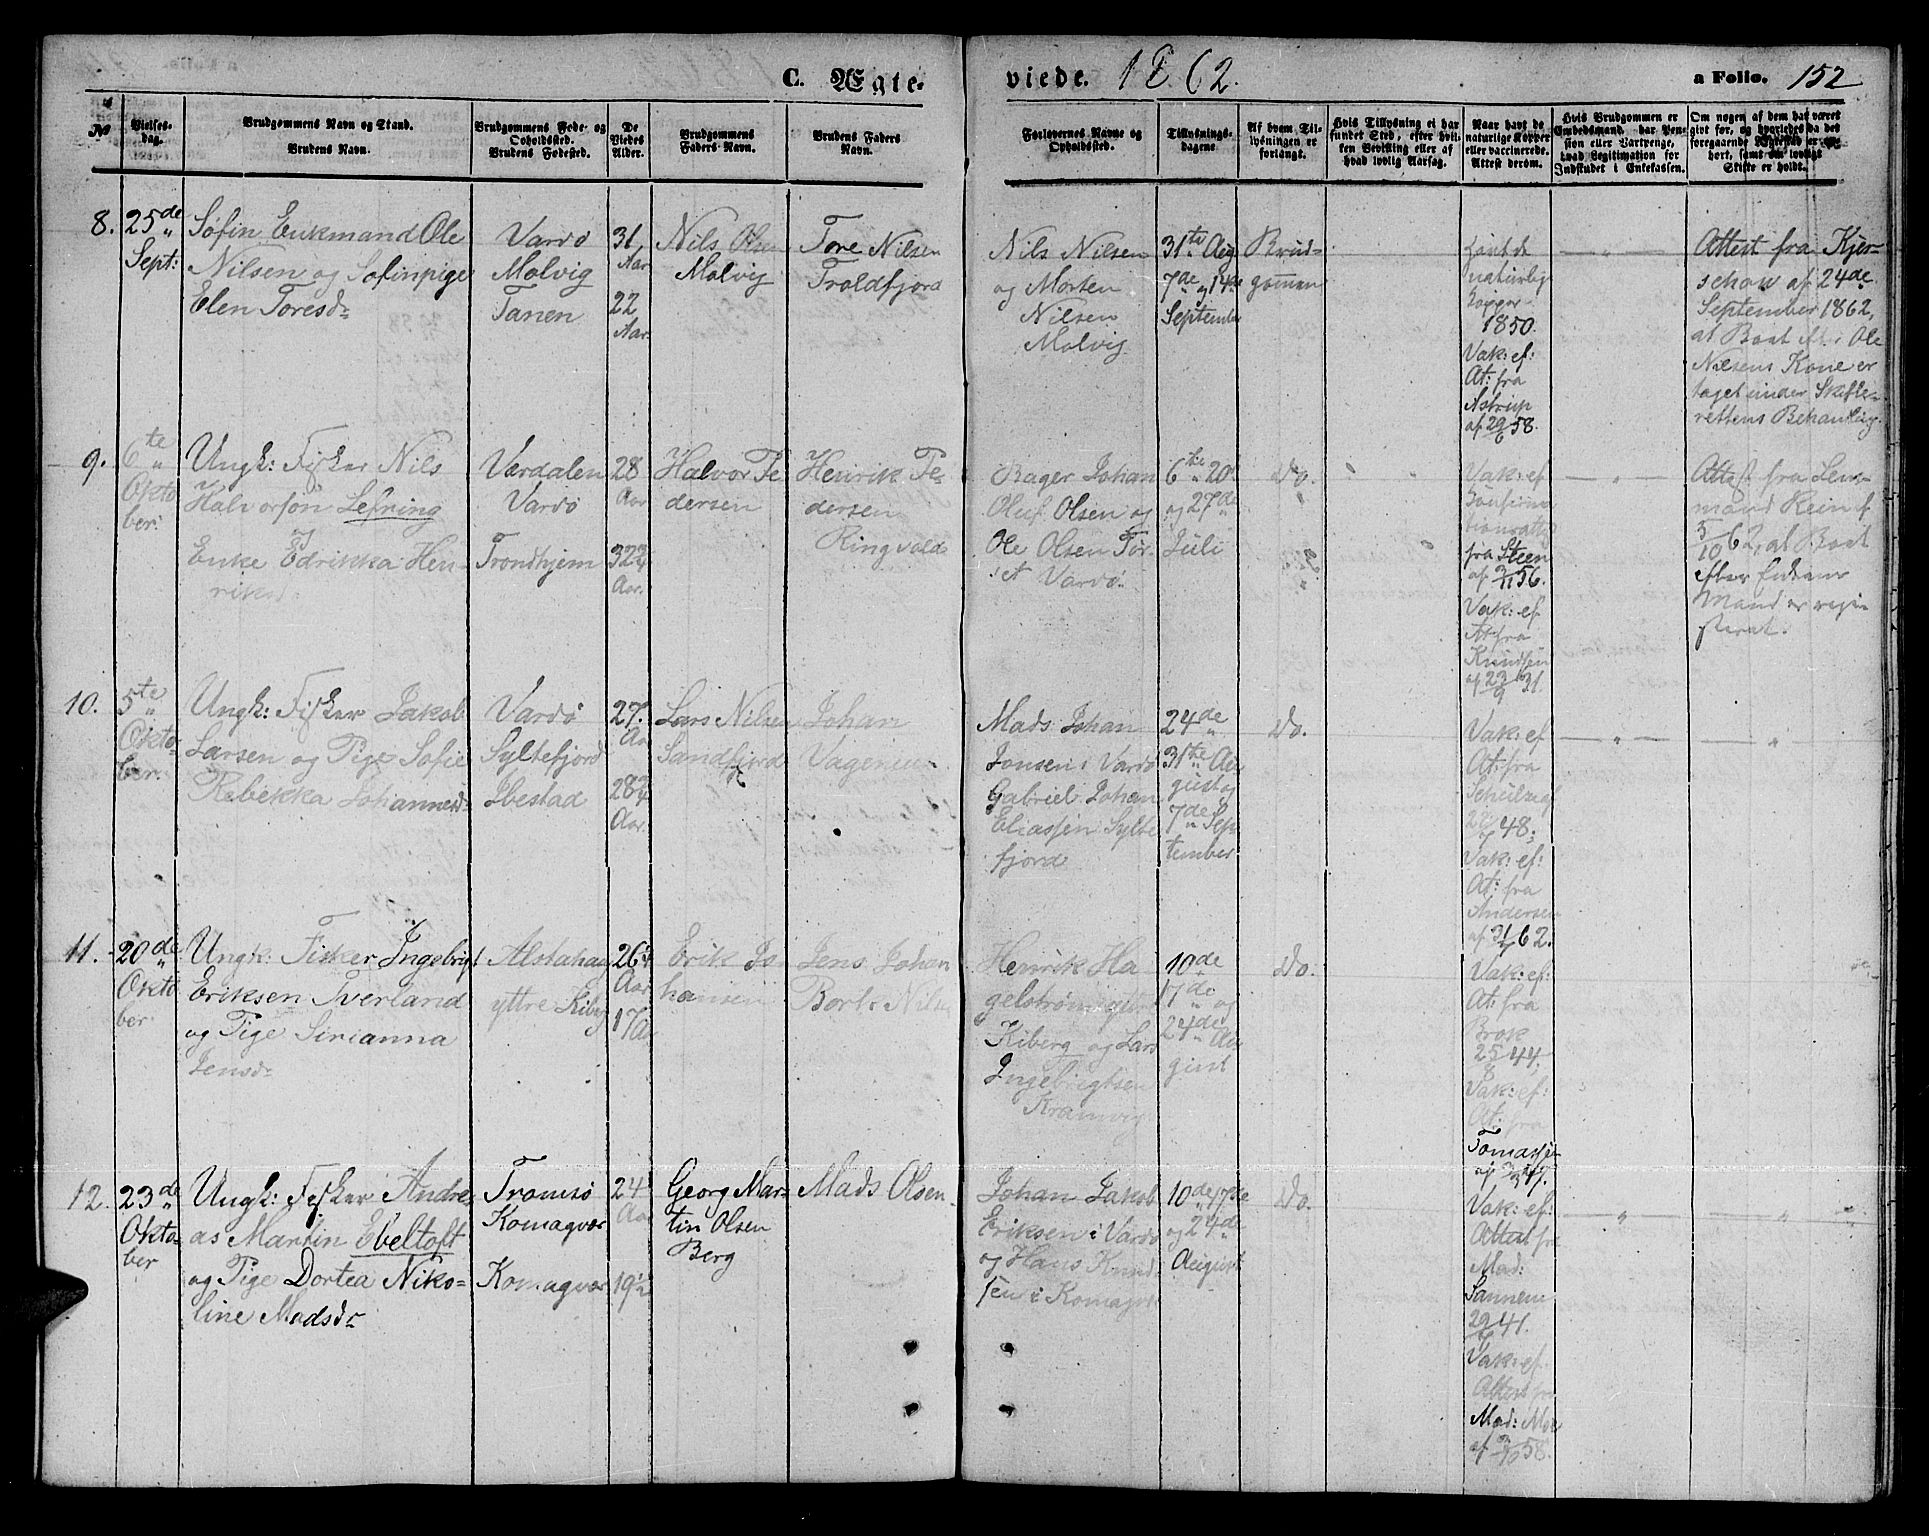 C. Ægteviede. 1862.
a Folio. 152
№
Vielsesdag.
Brudgommens Navn og Stand.
Brudens Navn.
Brudgommens Føde- og Opholdssted.
Brudens Fødested.
De Viedes Alder.
Brudgommens Faders Navn.
Brudens Faders Navn.
Forlovernes Navne og Opholdssted.
Tillysningsdagene
Af hvem Tillysningen er forlangt.
Hvis Tillysning ei har fundet Sted, efter hvilken Bevilling eller af hvad lovlig Aarsag.
Naar havt de naturlige Kopper eller vaccinerede. Attest derom.
Hvis Brudgommen er Embedsmand, har Pension eller Vartpenge, hvad Legitimation for Indskudet i Enkekassen.
Om nogen af dem har været gift før, og hvorledes da det foregaaende Ægteskab er hørt, samt om lovligt Skifte er holdt.
8.
25de
Sept:
Søfin Enkmand Ole
Nilsen og Søfinpige
Elen Toresdr
Vardø
Molvig
Tanen
31
Aar
22
Aar.
Nils Olsen
Molvig
Tore Nilsen
Troldfjord
Nils Nilsen
og Morten
Nilsen
Molvig
31te Aug
7de og 14de
September
Brudgommen
havt de
naturlig
Kopper
1850.
Vak: ef:
At: fra
Astrup
af 29/6 58.
Attest fra Kjerschow af 24de
September 1862,
at Boet efter Ole
Nilsens Kone er
taget under Skifterettens Behandling.
9.
6te
Oktober.
Ungk: Fisker Nils
Halvorsøn Lefring
og
Enke Edrikka Henriksd.
Værdalen
Vardø
Trondhjem
28
Aar
32 3/4
Aar.
Halvor Pedersen
Henrik Pedersen
Ringvold
Bager Johan
Oluf Olsen og
Ole Olsen Tørset Vardø.
6te 20de
og 27de
Juli
Do.
Vak: ef
fra Steen
af 2/11 56.
Vak: ef
At fra
Knudsen
af 23/9 31.
Attest fra Lensmand Rein af
5/10 62, at Boet
efter Enkens
Mand er registeret.
10.
5te
Oktober.
Ungk: Fisker Jakob
Larsen og Pige Sofie
Rebekka Johannesd:
Vardø
Syltefjord
Ibestad
27.
Aar
28 3/4
Aar.
Lars Nilsen
Sandfjord
Johan
Vagenius
Mads Johan
Jonsen i Vardø
Gabriel Johan
Eliassen Syltefjord
24de
31te August og
7de September.
Do.
Vak: ef
At: fra
Schulz af
48;
Vak: ef:
At: fra
Andersen
af 62.
11.
20de
Oktober
Ungk: Fisker Ingebrigt
Eriksen Tverland
og Pige Sirianna
Jensdr
Alstahaug
yttre Kiberg
26
Aar
17 Aar
Erik Johansen
Jens Johan
Henrik Hagelstrøm yttre
Kiberg og Lars
Ingebrigtsen
Kramvig
10de
17de og
24de August
Do.
Vak: ef:
At: fra
Brok
25/8 44,
Vak: ef:
At: fra
Tomassen
12.
23de
Oktober
Ungk: Fisker Andreas Martin Ebeltoft
og Pige Dortea Nikoline Madsdr
Tromsø
Komagvær
Komagvær
24
Aar
19 1/2
Georg Martin Olsen
Berg
Mads Olsen
Johan Jakob
Eriksen i Vardø
og Hans Knudsen i Komagvær
10de 17de
og 24de
August
Do.
Vak: ef:
Attest fra
Mad:
Sannem
41.
Vak: ef
Attest fra
Mad: Moe
58.